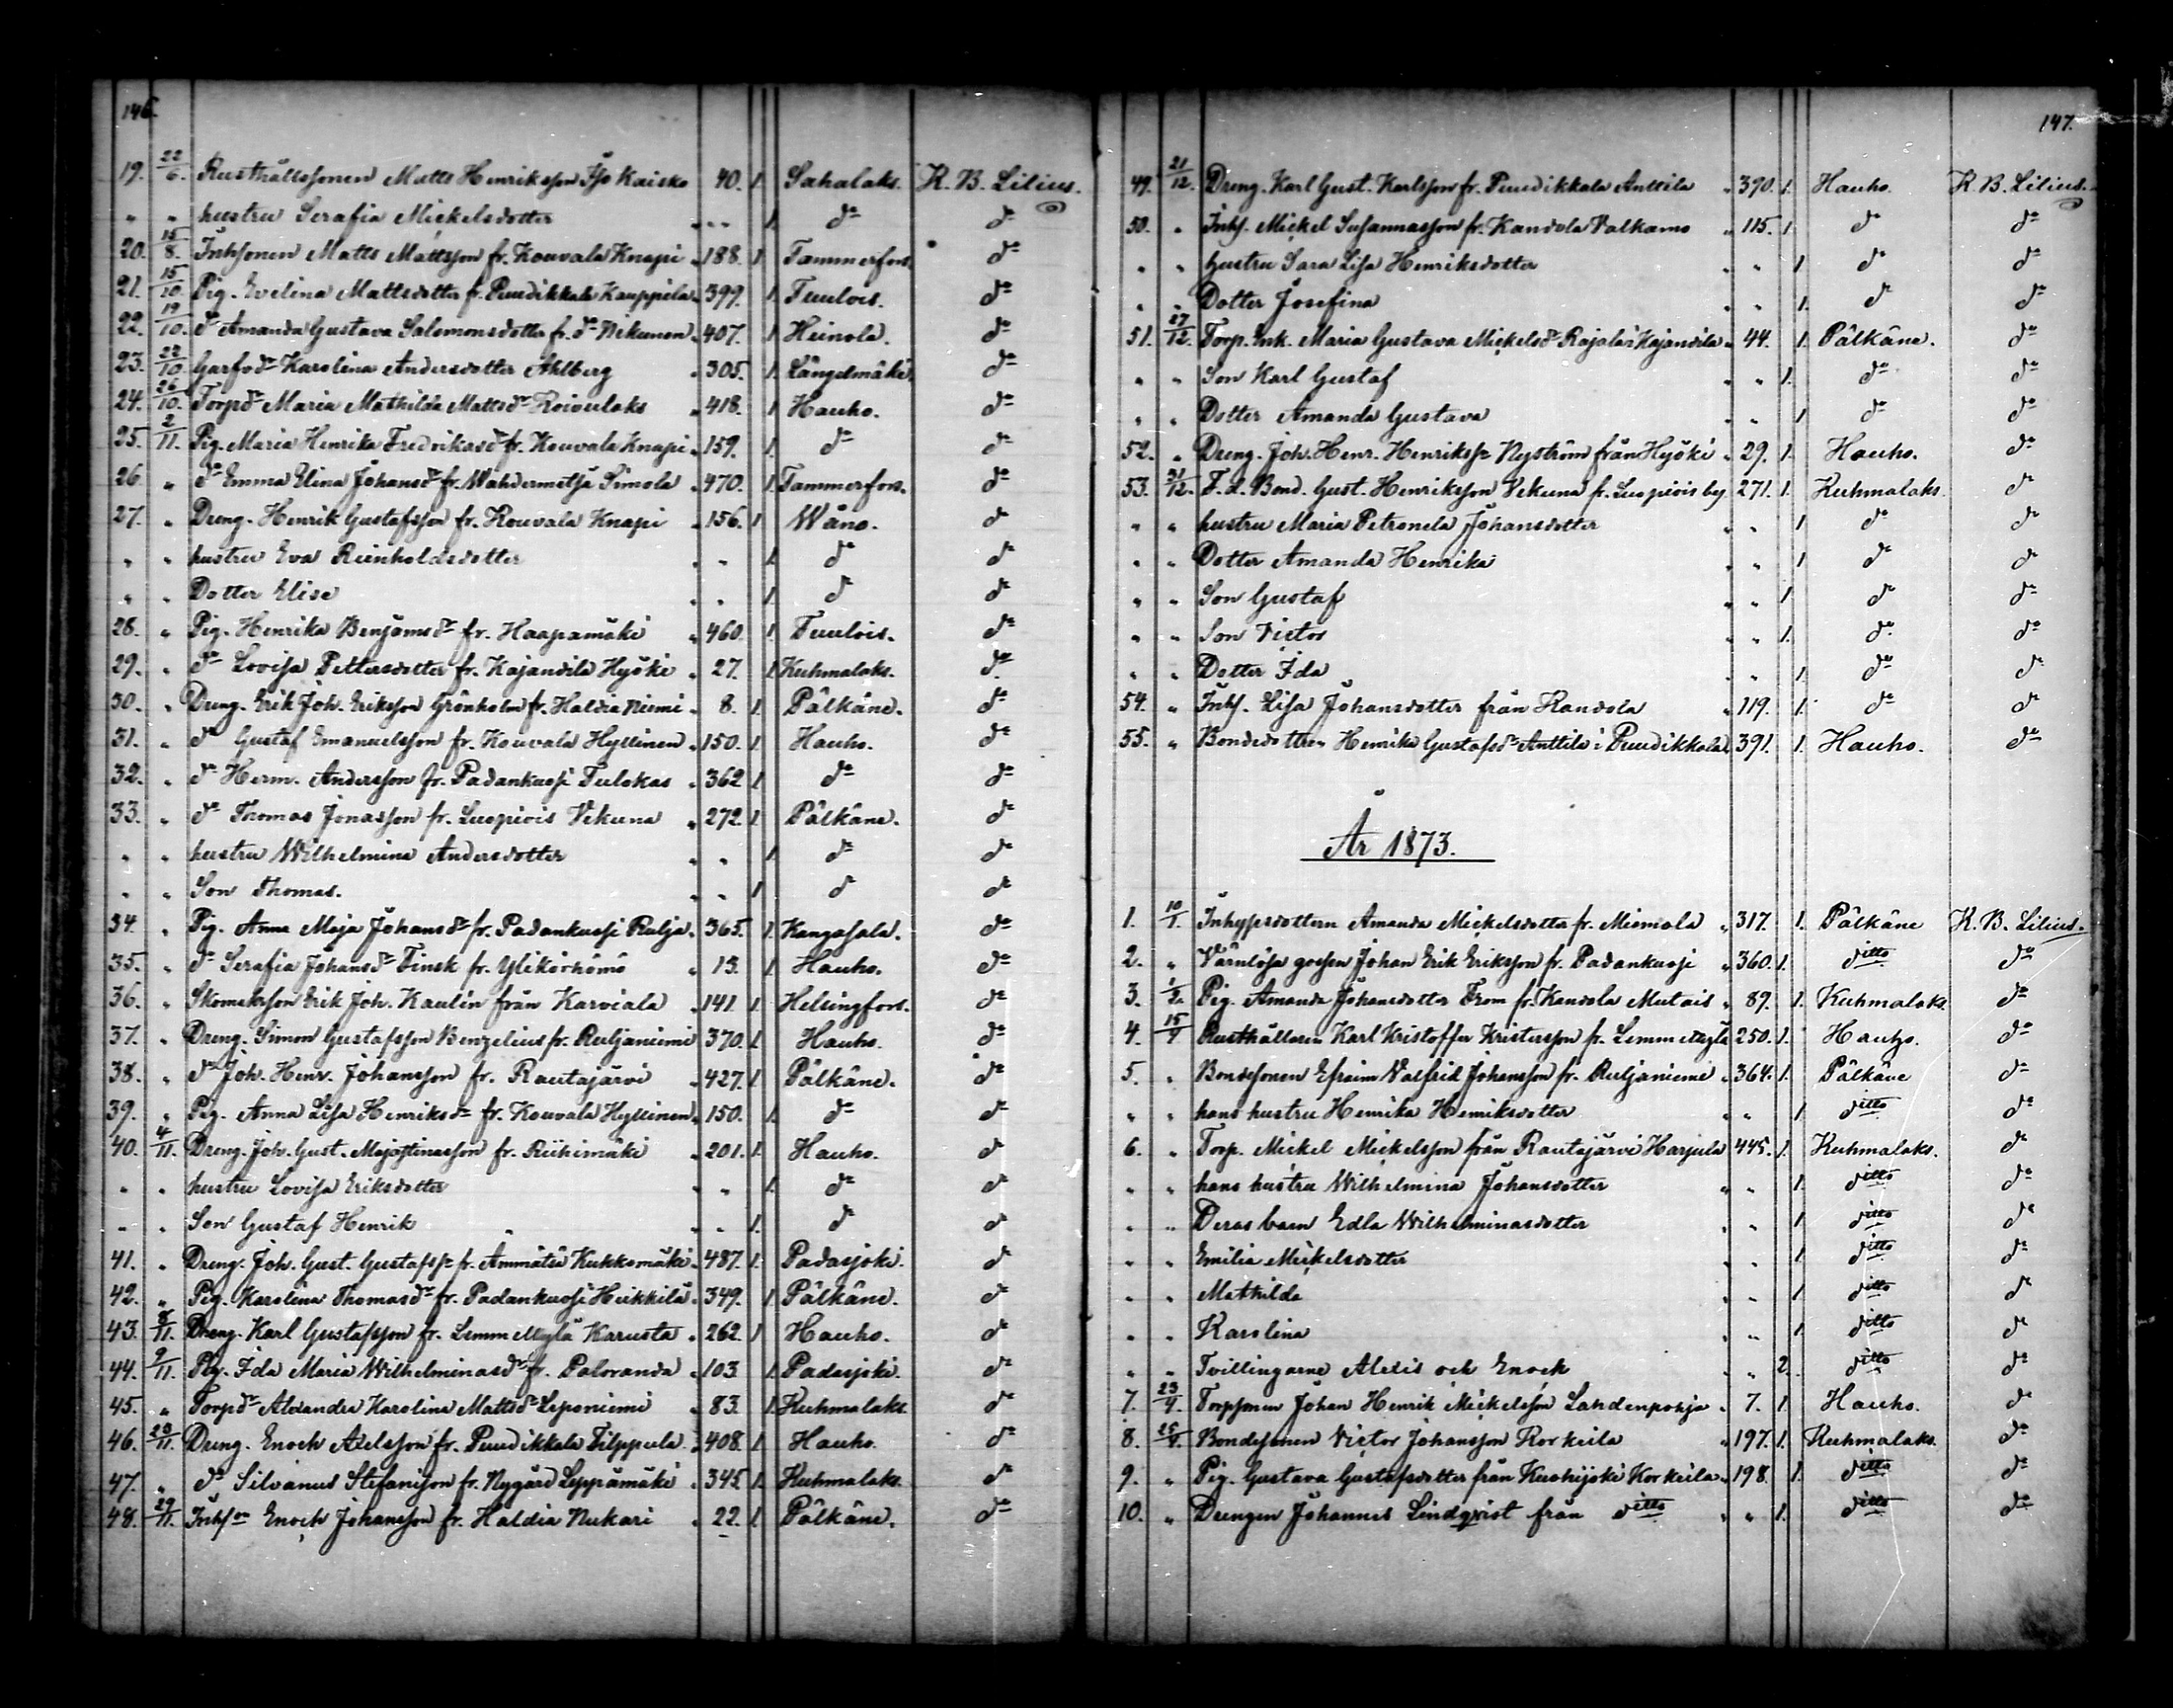 146.
19. 22/6. Rusthållssonen Matts Henriksson Iso Kaisko 40. 1. Sahalaks. K. B. Lilius.
" " hustru Serafia Mickelsdotter " " 1. do do
20. 15/8. Inhsonen Matts Mattsson fr. Kouvala Knapi " 188. 1 Tammerfors. do
21. 15/10. Pig. Evelina Mattsdotter fr. Puudikkala Kauppila " 399. 1. Tuulois. do
22. 19/10. do Amanda Gustava Salomonsdotter fr. do Nikunen " 407. 1 Heinola. do
23. 22/10. Garfvdr Karolina Andersdotter Ahlberg " 305. 1. Längelmäki. do
24. 26/10. Torpdr Maria Mathilda Mattsdr Roivulaks " 418. 1 Hauho. do
25. 2/11. Pig. Maria Henrika Fredrikasdr fr. Kouvala Knapi " 159. 1. do do
26. " do Emma Elina Johansdr fr. Wahdermetsä Simola " 470. 1. Tammerfors. do
27. " Dreng. Henrik Gustafsson fr. Kouvala Knapi " 156. 1 Wåno. do
" " hustru Eva Reinholdsdotter " " 1. do do
" " Dotter Elise " " 1. do do
28. " Pig. Henrika Benjamsdr fr. Haapamäki " 460. 1. Tuulois. do
29. " do Lovisa Pettersdotter fr. Kajandila Hyöki " 27. 1 Kuhmalaks. do
30. " Dreng. Erik Joh. Eriksson Grönholm fr. Haldia Niemi " 8. 1. Pälkäne. do
31. " do Gustaf Emanuelsson fr. Kouvala Hyllinen " 150. 1. Hauho. do
32. " do Herm. Andersson fr. Padankuosi Tulokas " 362 1. do do
33. " do Thomas Jonasson fr. Luopiois Vekuna " 272. 1. Pälkäne. do
" " hustru Wilhelmina Andersdotter " " 1. do do
" " Son Thomas. " " 1 do do
34. " Pig. Anna Maja Johansdr fr. Padankuosi Rulja " 365. 1. Kangasala. do
35. " do Serafia Johansdr Finsk fr. Ylikörhömö " 13. 1. Hauho. do
36. " Skomaksson Erik Joh. Kaulin från Karviala " 141 1. Helsingfors. do
37. " Dreng. Simon Gustafsson Benzelius fr. Ruljaniemi 370. 1. Hauho. do
38. " do Joh. Henr. Johansson fr. Rautajärvi " 427. 1. Pälkäne. do
39. " Pig. Anna Lisa Henriksdr fr. Kouvala Hyllinen " 150. 1. do do
40. 4/11. Dreng. Joh. Gust. Majastinasson fr. Riihimäki " 201. 1. Hauho. do
" " hustru Lovisa Eriksdotter " " 1. do do
" " Son Gustaf Henrik " " 1. do do
41. " Dreng. Joh. Gust. Gustafsson fr. Ämmätsä Kukkomäki " 487. 1. Padasjoki. do
42. " Pig. Karolina Thomasdr fr. Padankuosi Heikkilä " 349. 1. Pälkäne. do
43. 8/11. Dreng. Karl Gustafsson fr. Lemmettylä Karusta " 262. 1 Hauho. do
44. 9/11. Pig. Ida Maria Wilhelminasdr fr. Paloranda " 103. 1. Padasjoki. do
45. " Torpdr Alexandra Karolina Mattsdr Leponiemi " 83. 1. Kuhmalaks. do
46. 23/11. Dreng. Enoch Axelsson fr. Puudikkala Filppula " 408. 1. Hauho. do
47. " do Silvanus Stefansson fr. Nygård Leppämäki " 345. 1. Kuhmalaks. do
48. 29/11. Inhson Enoch Johansson fr. Haldia Nukari " 22. 1. Pälkäne. do
147.
49. 21/12. Dreng. Karl Gust. Karlsson fr. Puudikkala Anttila " 390. 1. Hauho. K. B. Lilius.
50. " Inhs. Mickel Susannasson fr. Kandola Valkamo " 115. 1. do do
" " hustru Sara Lisa Henriksdotter " " 1. do do
" " Dotter Josefina " " 1. do do
51. 27/12. Torp. Enk. Maria Gustava Mickelsdr Rajala i Kajandila " 44. 1. Pälkäne. do
" " Son Karl Gustaf " " 1. do do
" " Dotter Amanda Gustava " " 1 do do
52. " Dreng. Joh. Henr. Henrikss. Nyström från Hyöki " 29. 1. Hauho. do
53. 31/12. F. d. Bond. Gust. Henriksson Vekuna fr. Luopiois by 271. 1. Kuhmalaks. do
" " hustru Maria Petronela Johansdotter " " 1 do do
" " Dotter Amanda Henrika " " 1 do do
" " Son Gustaf " " 1 do do
" " Son Victor " " 1. do do
" " Dotter Ida " " 1. do do
54. " Inhs. Lisa Johansdotter från Kandola " 119. 1. do do
55. " Bondedottren Henrika Gustafsdr Anttila i Puudikkala 391. 1. Hauho. do
År 1873.
1. 10/1. Inhyssdottern Amanda Mickelsdotter fr. Miemola " 317. 1. Pälkäne K. B. Lilius.
2. " Värnlösa gossen Johan Erik Eriksson fr. Padankuosi " 360. 1. ditto do
3. Pig. Amanda Johansdotter From fr. Kandola Mutais " 89. 1. Kuhmalaks. do
4. Rusthållaren Karl Kristoffer Kristersson fr. Lemmettylä 250. 1. Hauho. do
5. " Bondesonen Efraim Valfrid Johansson fr. Ruljaniemi " 364. 1. Pälkäne do
" " hans hustru Henrika Henriksdotter " " 1 ditto do
6. " Torp. Mickel Mickelsson från Rautajärvi Harjula 445. 1. Kuhmalaks. do
" " hans hustru Wilhelmina Johansdotter " " 1. ditto do
" " Deras barn Edla Wilhelminasdotter " " 1 ditto do
" " Emilia Mickelsdotter " " 1 ditto do
" " Mathilda " " 1 ditto do
" " Karolina " " 1. ditto do
" " Tvillingarne Alexis och Enoch " 2. ditto do
7. Torpsonen Johan Henrik Mickelsson Lahdenpohja " 7. 1. Hauho. do
8. Bondesonen Victor Johansson Korkeila " 197. 1. Kuhmalaks. do
9. " Pig. Gustava Gustafsdotter från Kuohijoki Korkeila " 198. 1. ditto do
10. " Drengen Johannes Lindqvist från ditto " " 1. ditto do